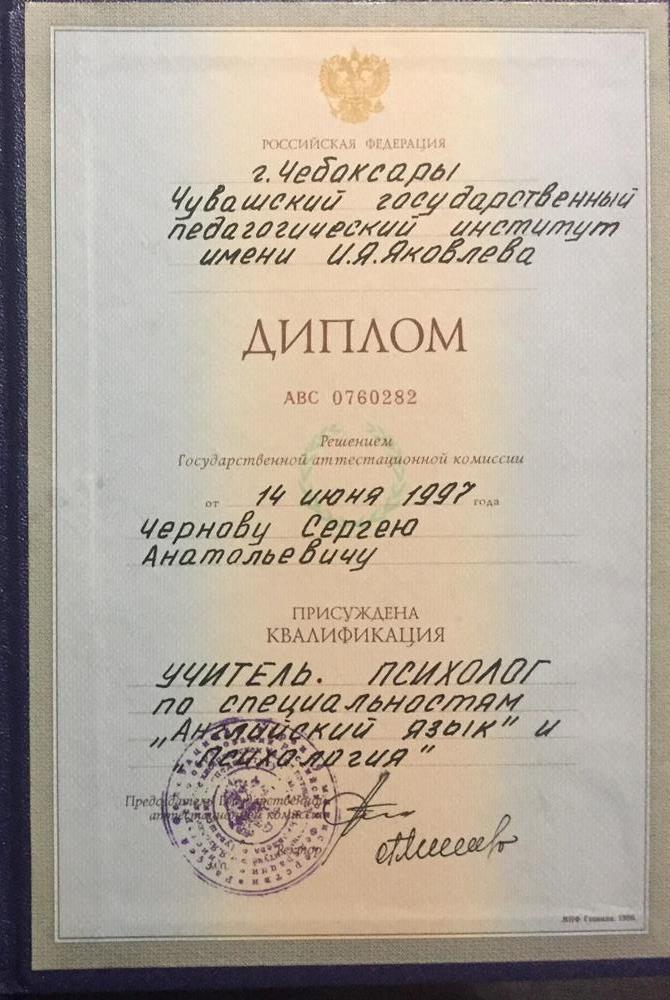 РОССИЙСКАЯ ФЕДЕРАЦИЯ
г. Чебоксары
Чувашский государственный
педагогический институт
имени И.Я.Яковлева
ДИПЛОМ
АВС 0760282
Решением
Государственной аттестационной комиссии
от 14 июня 1997 года
Чернову Сергею
Анатольевичу
ПРИСУЖДЕНА
КВАЛИФИКАЦИЯ
УЧИТЕЛЬ. ПСИХОЛОГ
по специальностям
„Английский язык" и
„Психология"
Председатель Государственной
аттестационной комиссии
Ректор
МПФ Гознака. 1996.